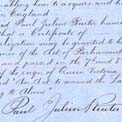 to acquire and
England
Paul Julius Reuter humbly
that a Certificate of
may be granted to
of the Act of Parliament
and passed on the 7th and 8
of the reign of Queen Victoria
An Act to amend the Laws
to Aliens"
Paul Julius Reuter